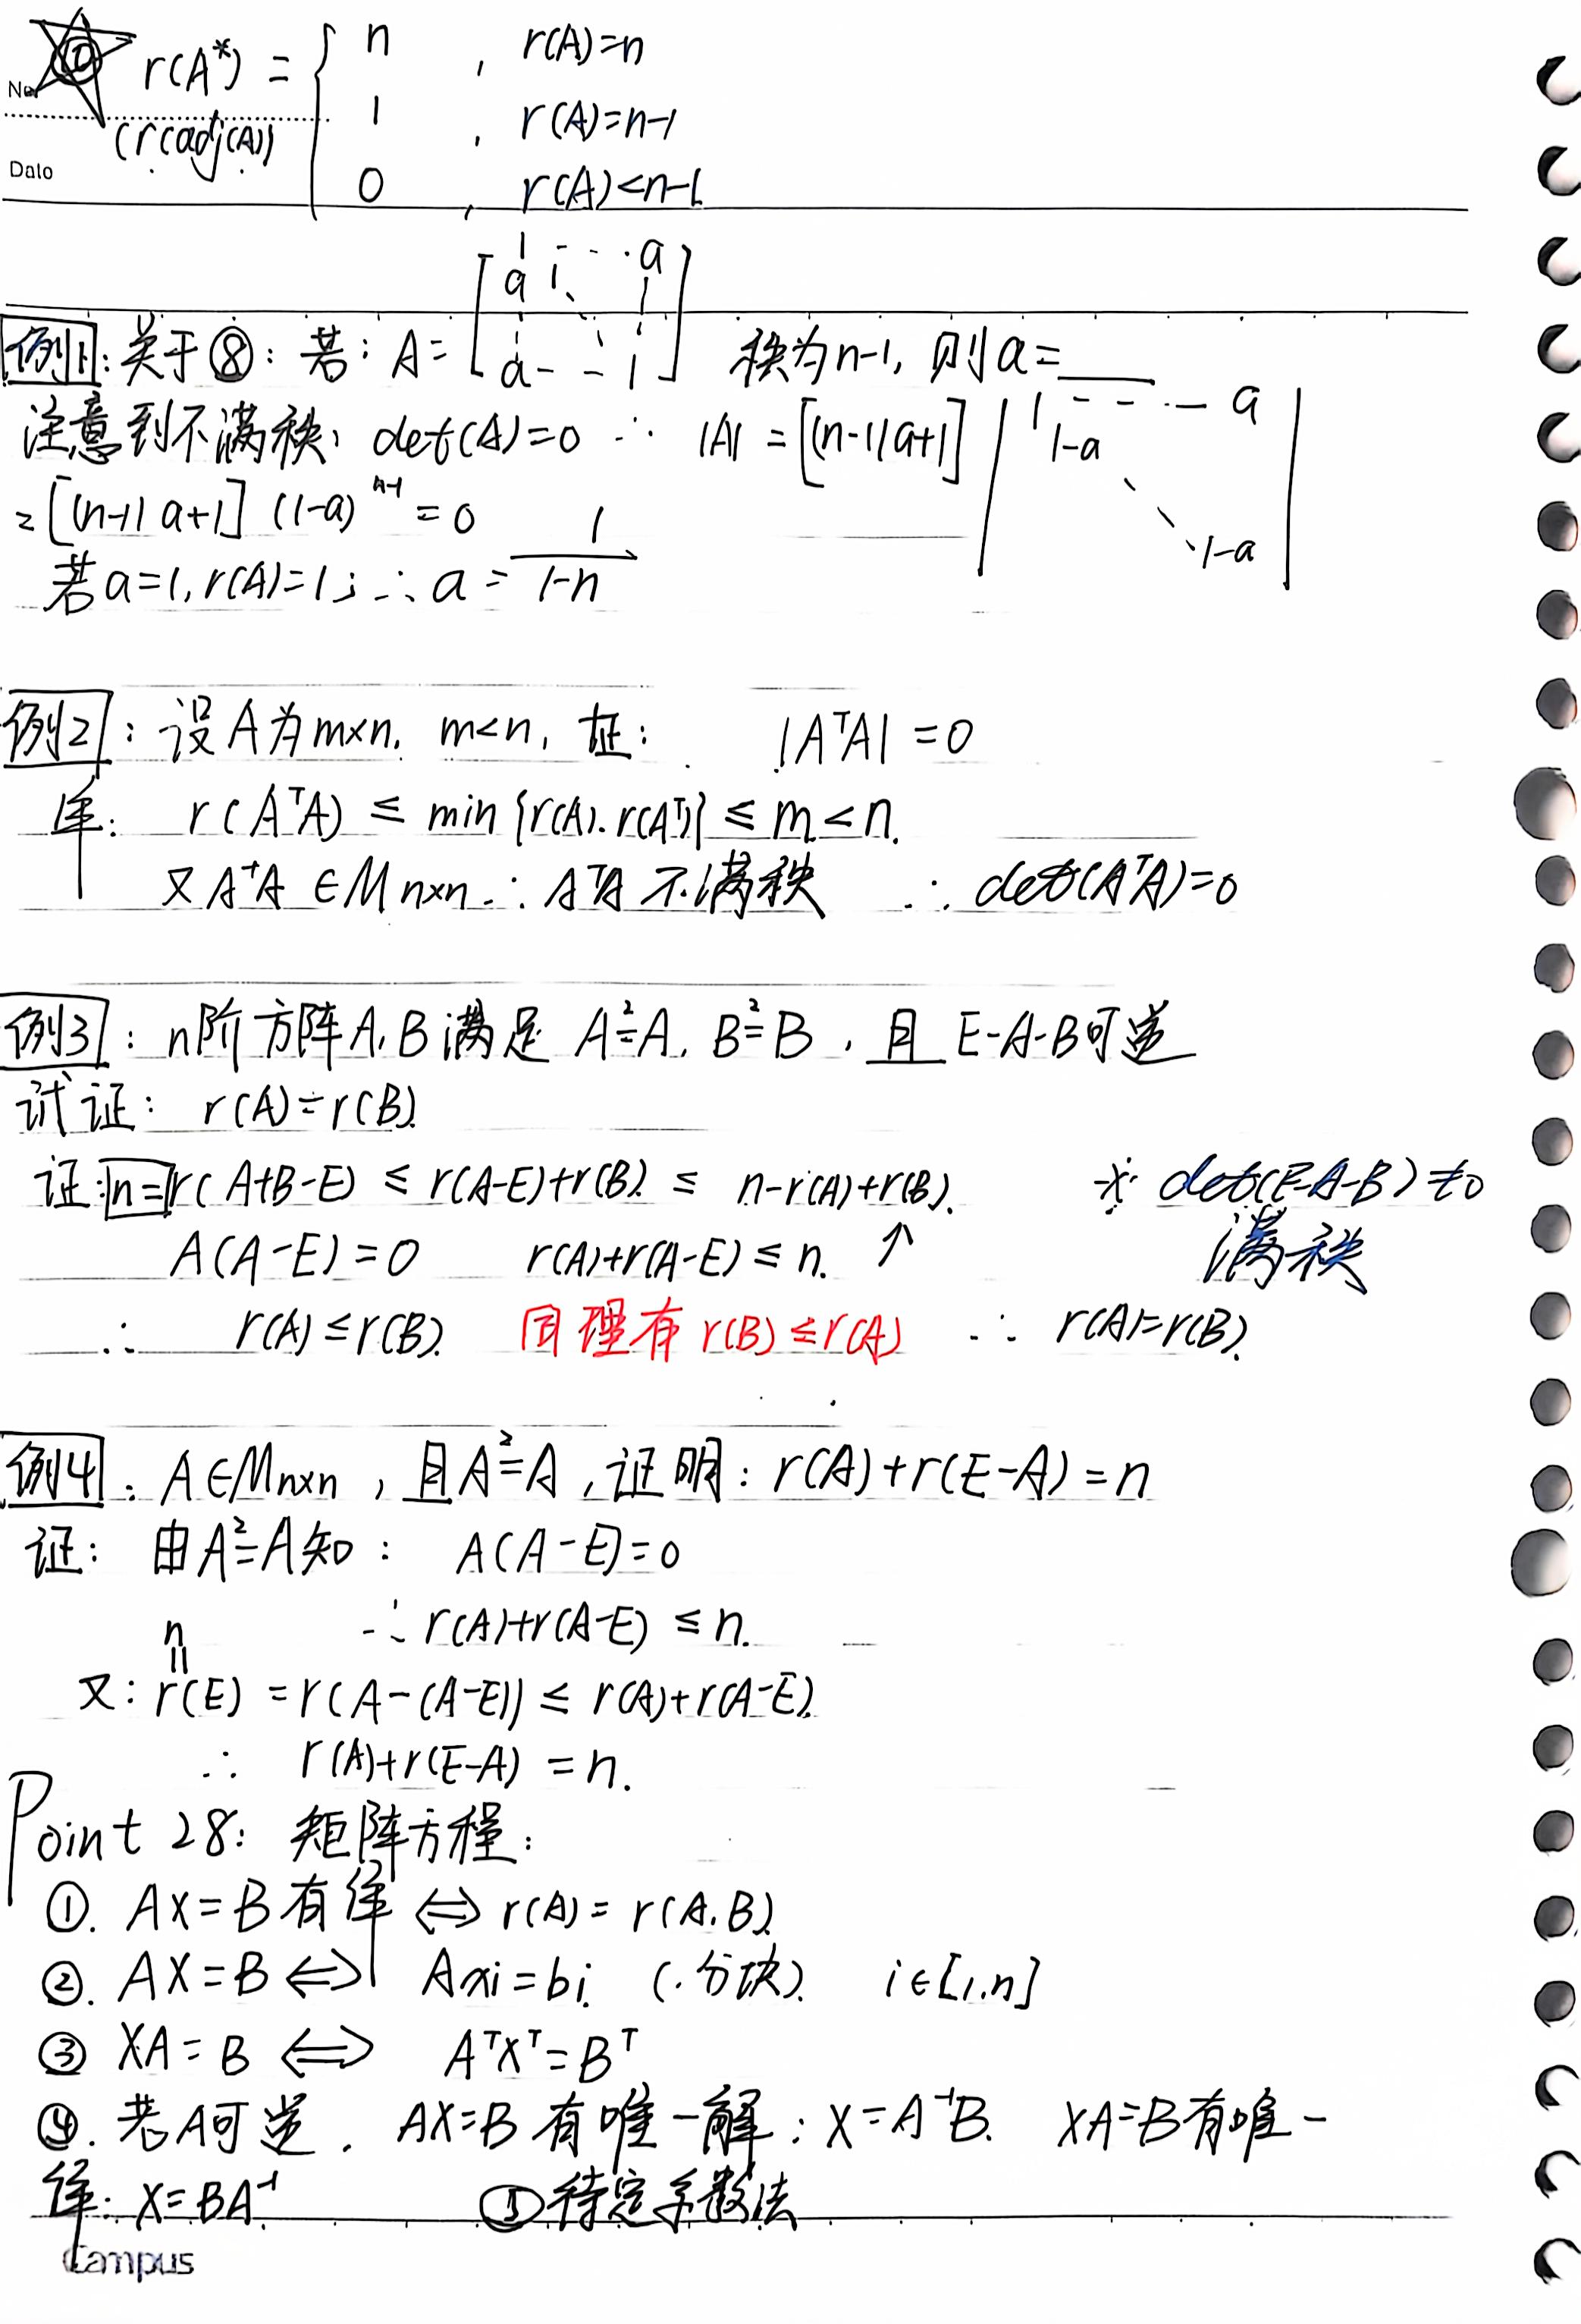 No.
Date
⑩ r(A*) = { n , r(A)=n
(r(adj(A)) 1 , r(A)=n-1
0 , r(A)<n-1
例1: 关于⑧: 若: A= [ 1 - - · a
a 1 ⋱ ⋮
a - - 1 ] 秩为n-1, 则a=____
注意到不满秩, det(A)=0 ∴ |A| = [(n-1)a+1] | 1 - - · - a
1-a
⋱
1-a |
= [(n-1)a+1] (1-a)^{n-1} = 0
若a=1, r(A)=1; ∴ a = 1/(1-n)
例2: 设A为m×n. m<n, 证: |AᵀA| = 0
解: r(AᵀA) ≤ min{r(A). r(Aᵀ)} ≤ m < n.
又AᵀA ∈ Mn×n ∴ AᵀA 不满秩 ∴ det(AᵀA)=0
例3: n阶方阵A, B满足 A²=A, B²=B, 且 E-A-B可逆
试证: r(A)=r(B).
证: n=r(A+B-E) ≤ r(A-E)+r(B) ≤ n-r(A)+r(B). ※ det(E-A-B)≠0
A(A-E)=0 r(A)+r(A-E)≤n. ↑ 满秩
∴ r(A)≤r(B). 同理有 r(B)≤r(A) ∴ r(A)=r(B).
例4: A∈Mn×n, 且A²=A, 证明: r(A)+r(E-A)=n
证: 由A²=A知: A(A-E)=0
∴ r(A)+r(A-E)≤n.
n
॥
又: r(E) = r(A-(A-E)) ≤ r(A)+r(A-E).
∴ r(A)+r(E-A) = n.
Point 28: 矩阵方程:
①. AX=B有解 ⟺ r(A) = r(A.B).
②. AX=B ⟺ Axi=bi. (分块). i∈[1,n]
③ XA=B ⟺ AᵀXᵀ=Bᵀ
④. 若A可逆. AX=B有唯一解: X=A⁻¹B. XA=B有唯一
解: X=BA⁻¹ ⑤待定系数法
Campus